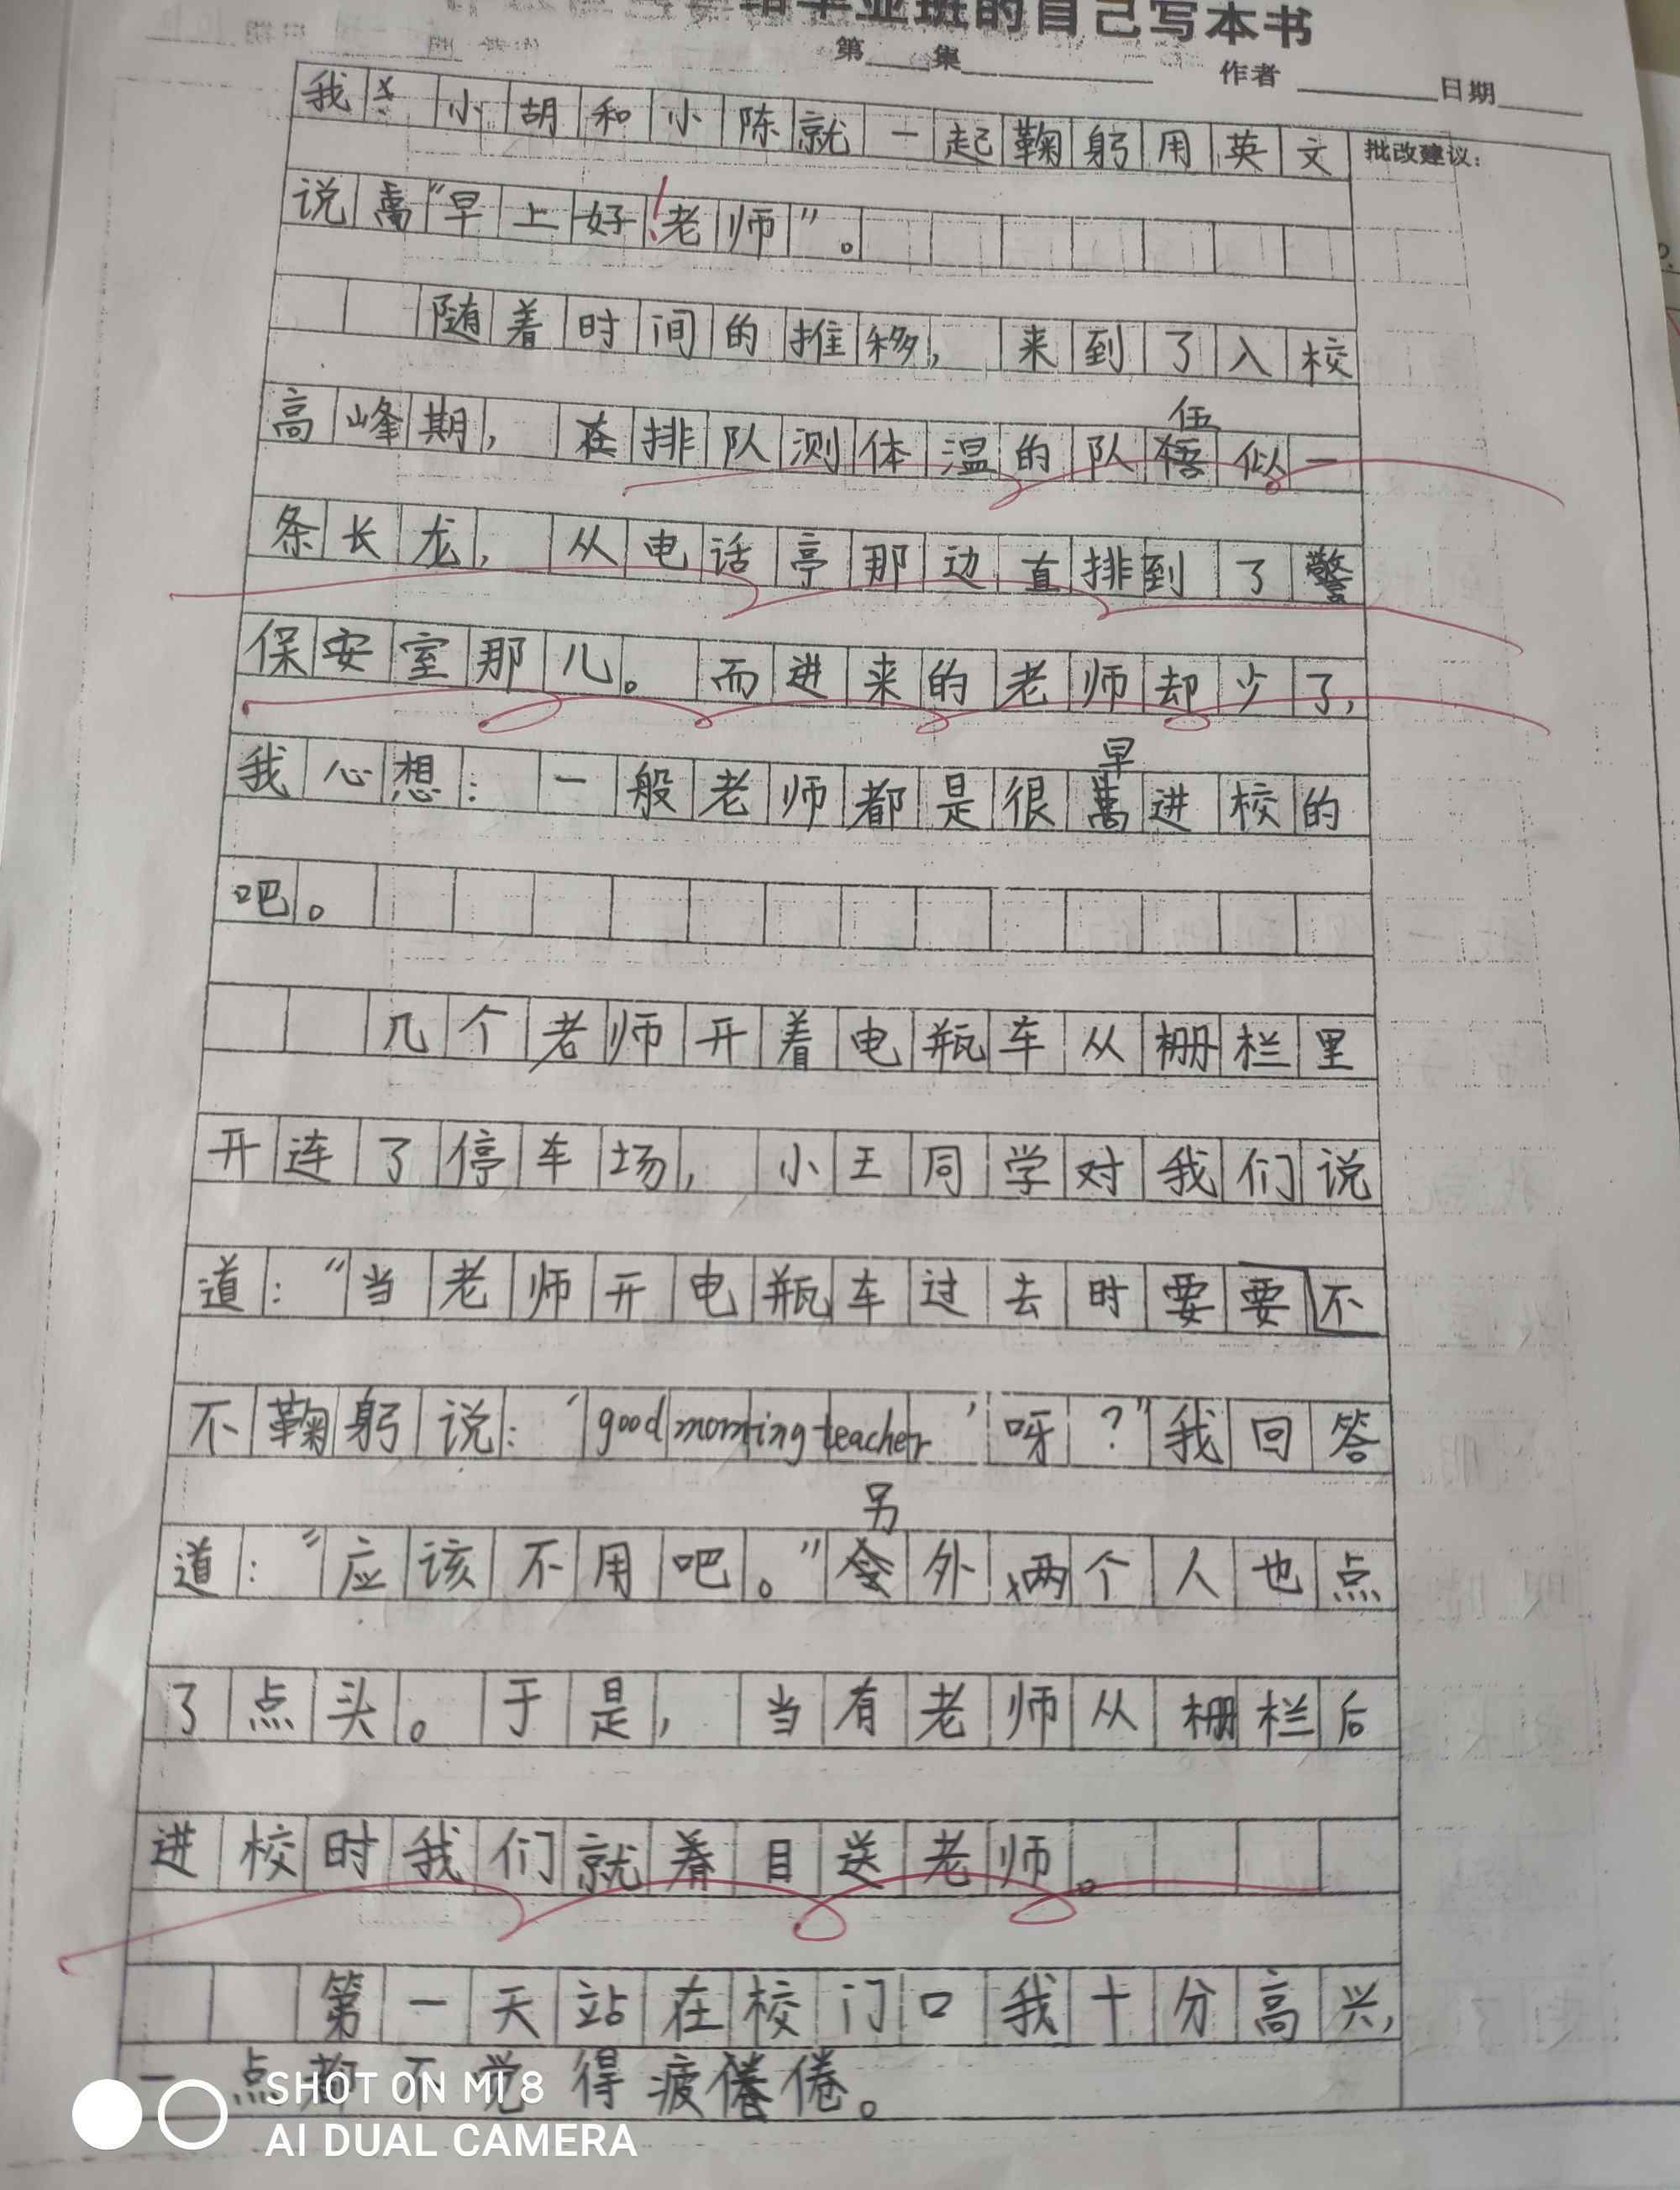 给毕业班的自己写本书
第 集 作者 日期
批改建议：
我 小胡和小陈就一起鞠躬用英文
说 “早上好！老师”。
随着时间的推移，来到了入校
高峰期，在排队测体温的队伍似一
条长龙，从电话亭那边直排到了
保安室那儿。而进来的老师却少了，
我心想：一般老师都是很早进校的
吧。
几个老师开着电瓶车从栅栏里
开连了停车场，小王同学对我们说
道：“当老师开电瓶车过去时要要不
不鞠躬说：‘good morning teacher’呀？”我回答
道：“应该不用吧。”另外两个人也点
了点头。于是，当有老师从栅栏后
进校时我们就着目送老师。
第一天站在校门口我十分高兴，
一点都不觉得疲倦。
SHOT ON MI 8
AI DUAL CAMERA